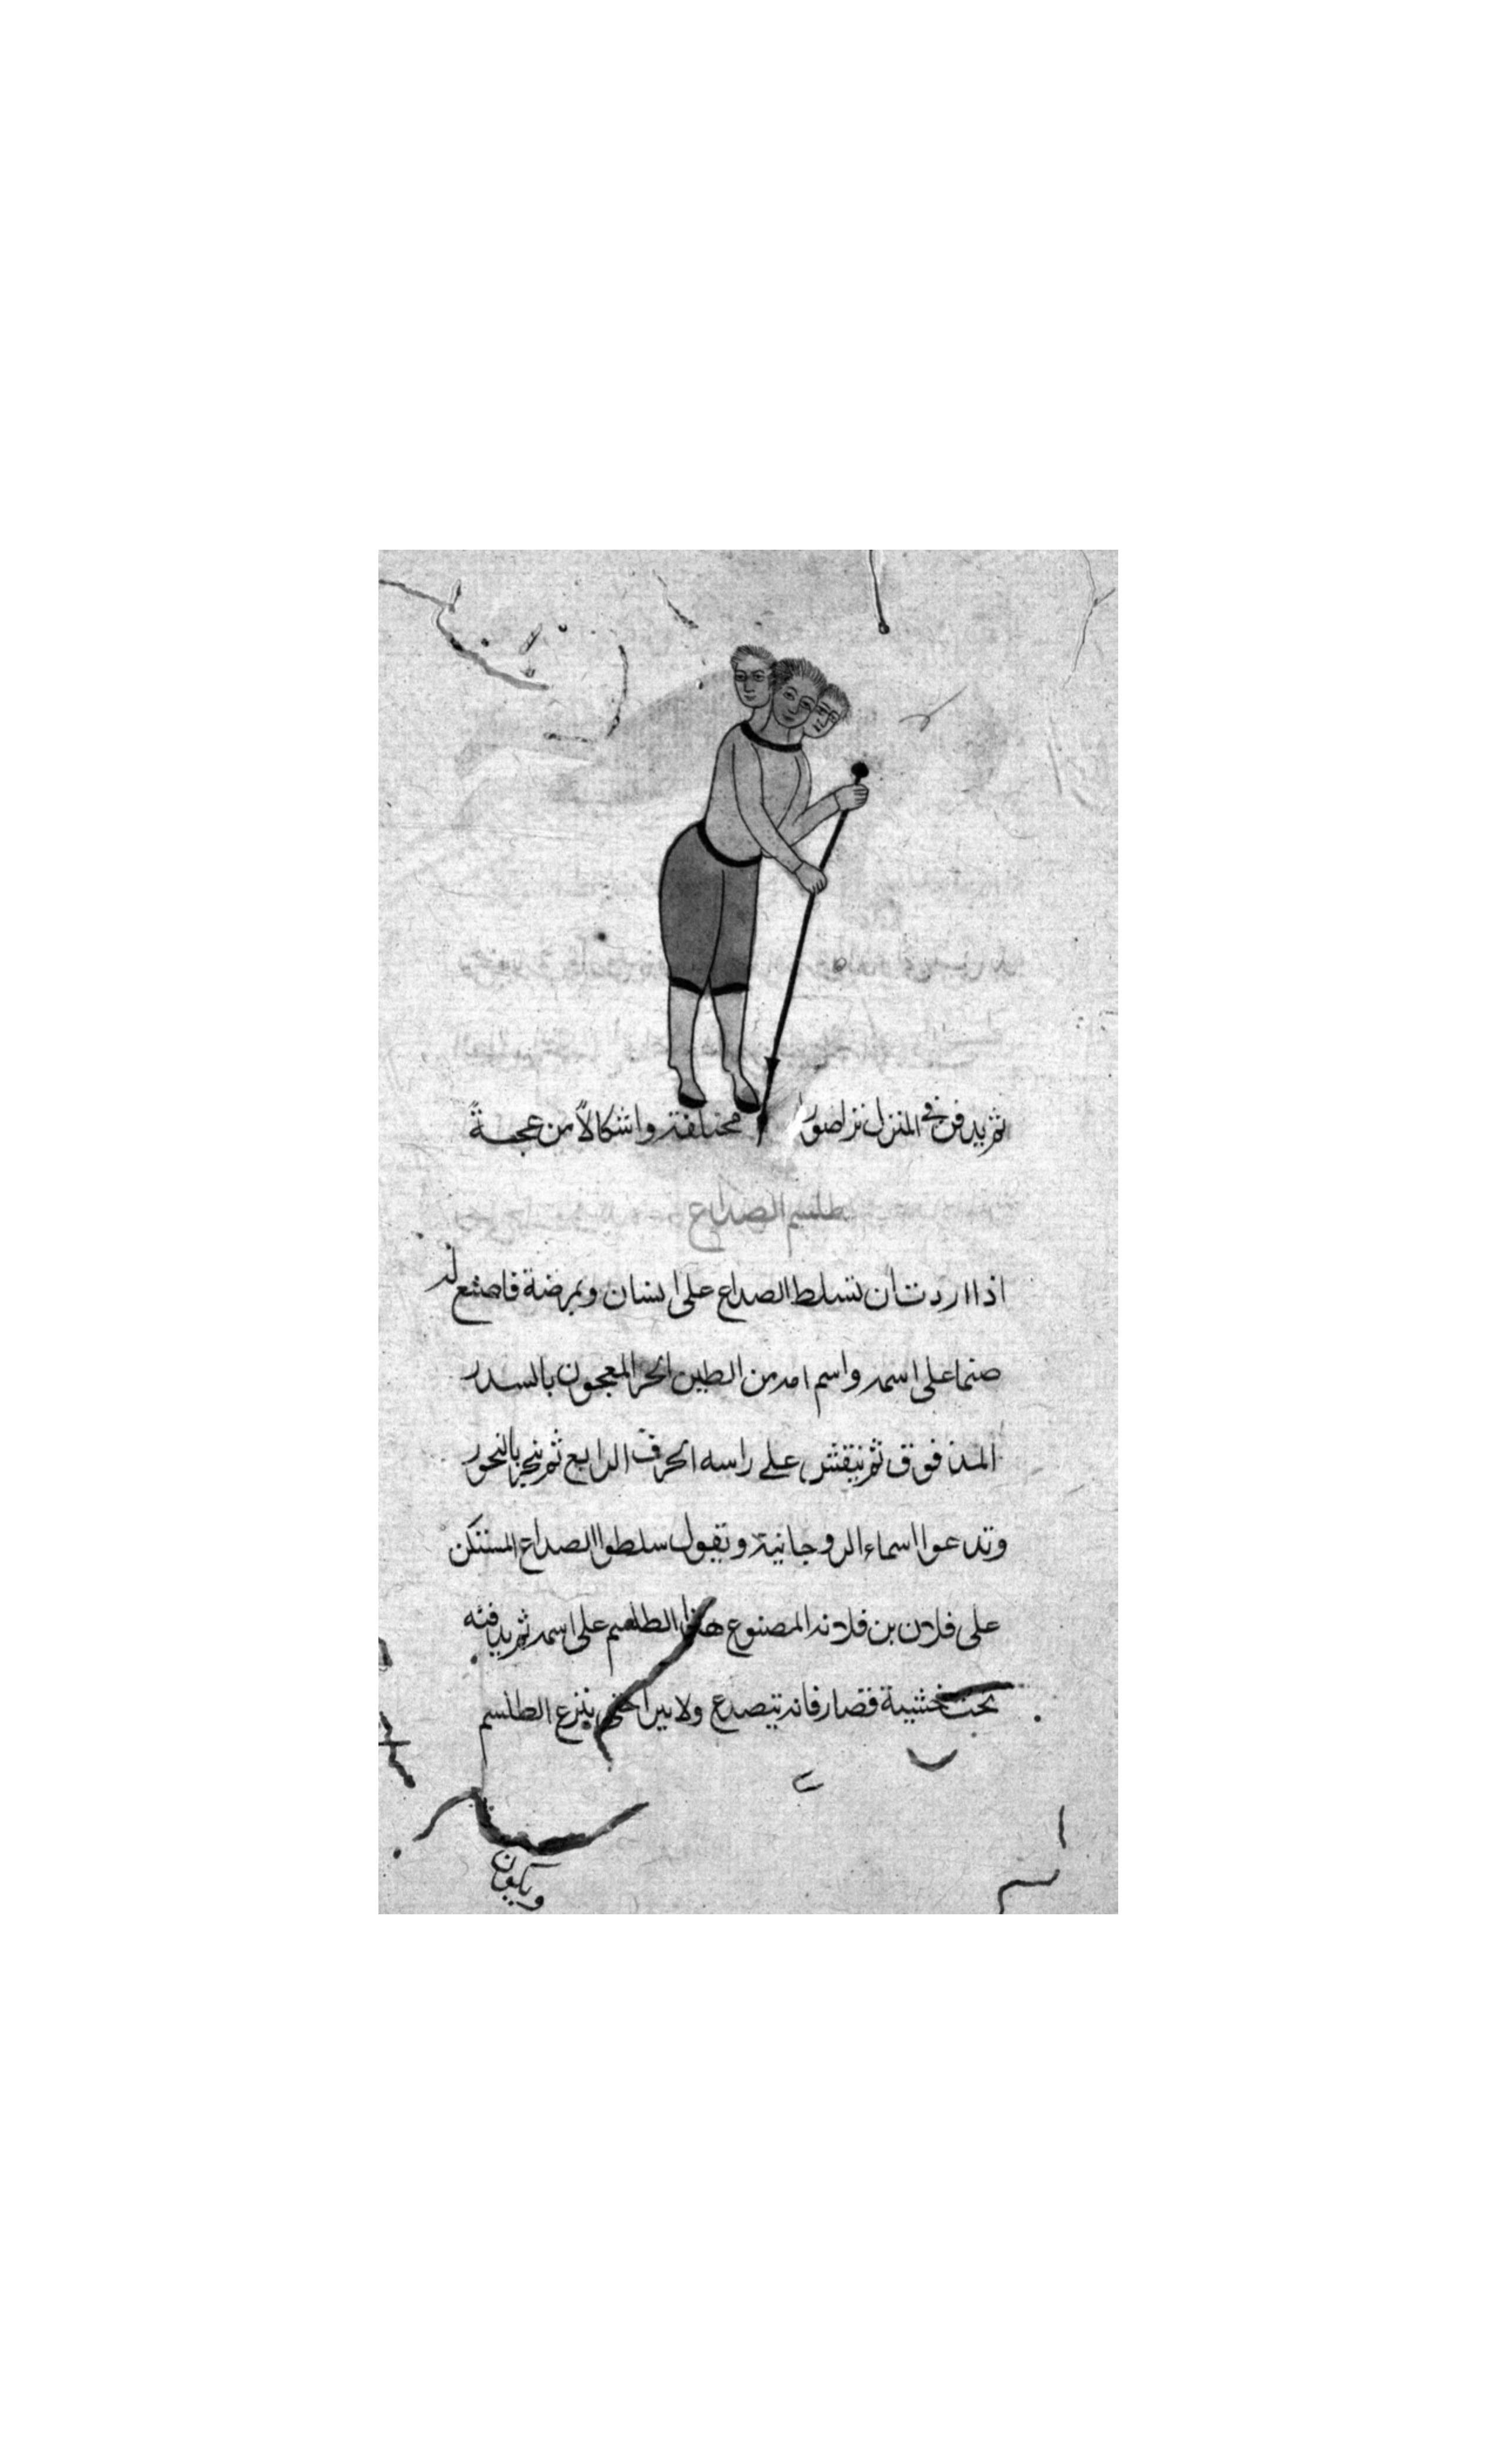 ثم يدفن في المنزل نرا صورا مختلفة واشكالاً من عجـبـةً
طلسم الصداع
اذا اردت ان تسلط الصداع على انسان وتمرضة فاصنع له
صنما على اسمه واسم امه من الطين الحر المعجون بالسدر
المدفوق ثم ينقش على راسه الحرف الرابع ثم يبخر بالبخور
وتدعوا اسماء الروحانية وتقول سلطوا الصداع المستكن
على فلان بن فلانه المصنوع هذا الطلسم على اسمه ثم يدفنه
تحت خشبة قصار فانه يتصدع ولا يبرا حتى ينزع الطلسم
ويكون